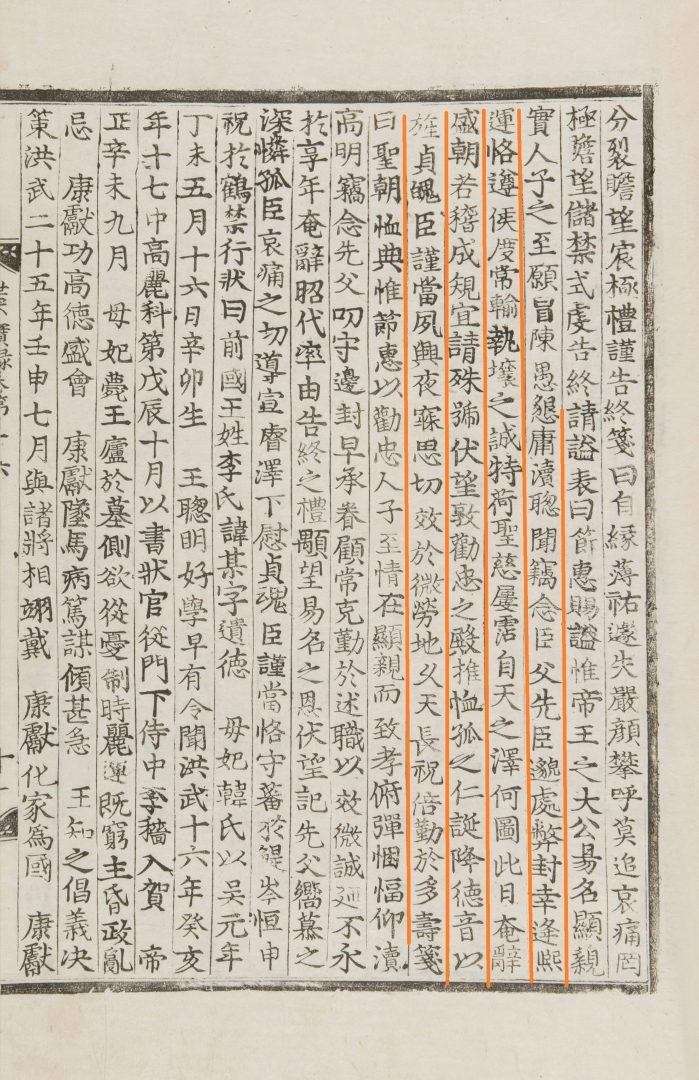 分裂瞻望宸極禮謹告終箋曰自緣薄祐遽失嚴顔攀呼莫追哀痛罔
極瞻望儲禁式虔告終請謚表曰節惠賜謚惟帝王之大公易名顯親
實人子之至願旨陳愚懇庸瀆聰聞竊念臣父先臣邈處弊封幸逢熙
運恪遵侯度常輸執壤之誠特荷聖慈屢霑自天之澤何圖此日奄辭
盛朝若稽成規宜請殊號伏望敦勸忠之推恤孤之仁誕降德音以
旌貞魄臣謹當夙興夜寐思切效於微勞地久天長祝倍勤於多壽箋
曰聖朝恤典惟節惠以勸忠人子至情在顯親而致孝俯殫悃愊仰瀆
高明竊念先父叨守邊封早承眷顧常克勤於述職以效微誠迺不永
於享年奄辭昭代率由告終之禮顒望易名之恩伏望記先父嚮慕之
深憐孤臣哀痛之切導宣睿澤下慰貞魂臣謹當恪守蕃於鯷岑恒申
祝於鶴禁行狀曰前國王姓李氏諱某字遺德 母妃韓氏以吳元年
丁未五月十六日辛卯生 王聰明好學早有令聞洪武十六年癸亥
年十七中高麗科第戊辰十月以書狀官從門下侍中李穡入賀 帝
正辛未九月 母妃薨王廬於墓側欲從憂制時麗運旣窮主昏政亂
忌 康獻功高德盛會 康獻墜馬病篤謀傾甚急 王知之倡義决
策洪武二十五年壬申七月與諸將相翊戴 康獻化家爲國 康獻